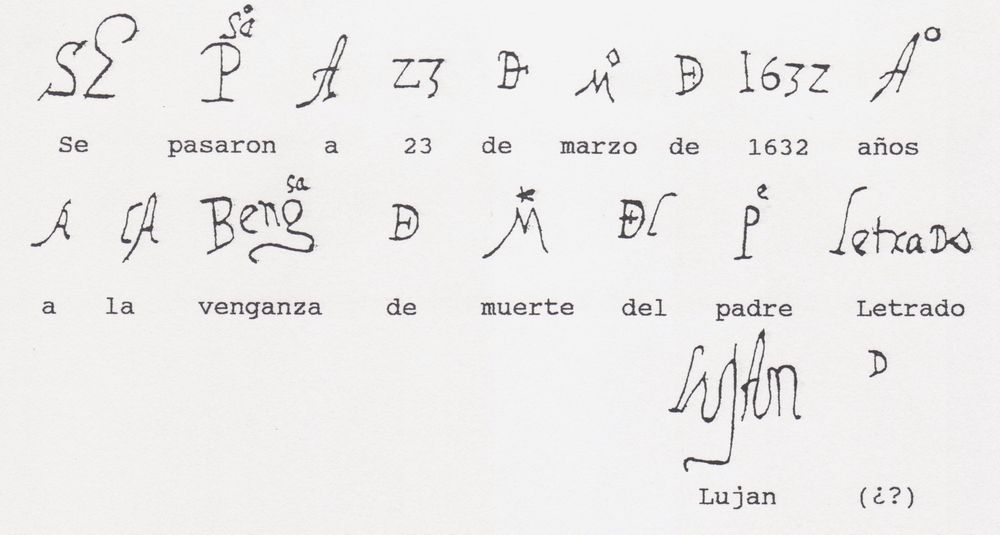 SE Psa A 23 D Mo D 1632 Ao
Se pasaron a 23 de marzo de 1632 años
A lA Bengsa D M* Dl Pe Letrado
a la venganza de muerte del padre Letrado
Lujan D
Lujan (¿?)